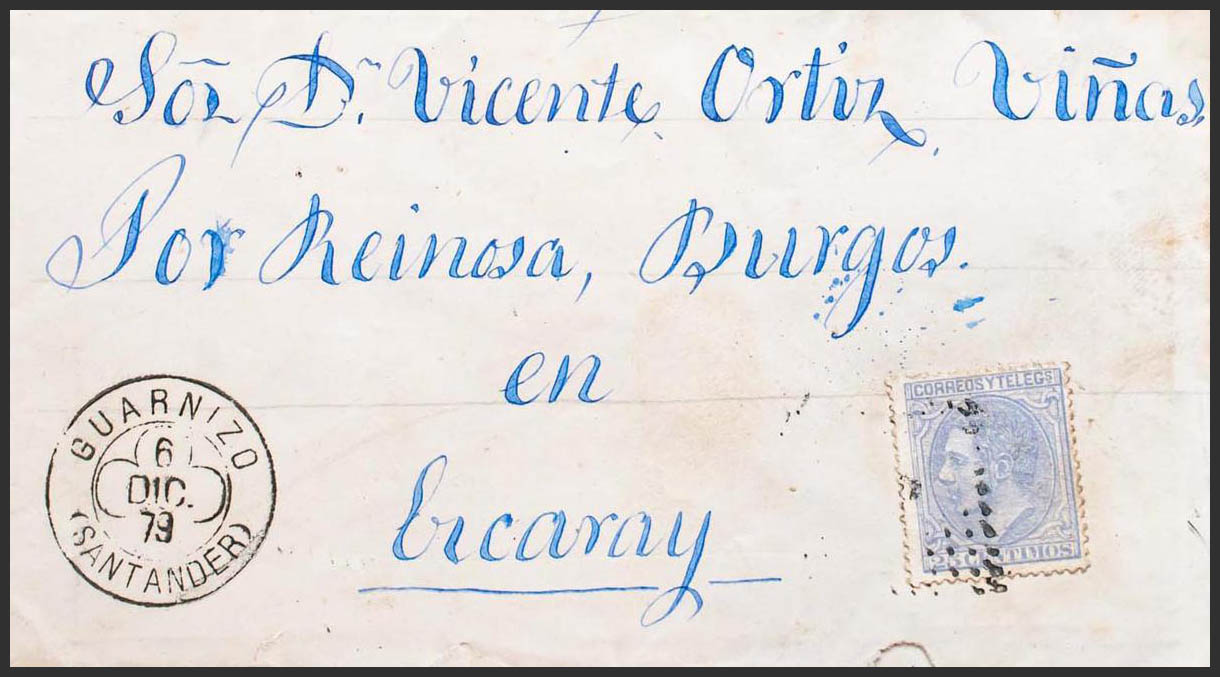 Sōr. Dn. Vicente Ortiz Viñas,
Por Reinosa, Burgos.
en
Ezcaray
GUARNIZO
6
DIC.
79
(SANTANDER)
CORREOS Y TELEGS
25 CENTIMOS